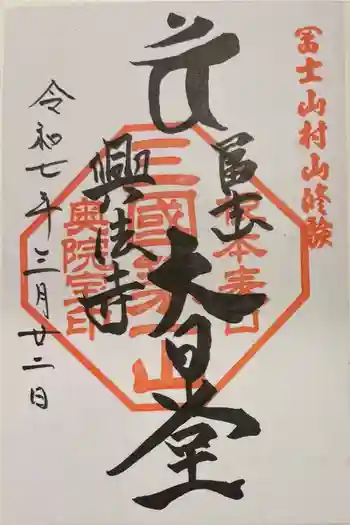 冨士山村山修験
冨士山
大日堂
興法寺
令和七年三月廿二日
三國第一山
根本表口
奥院宝印